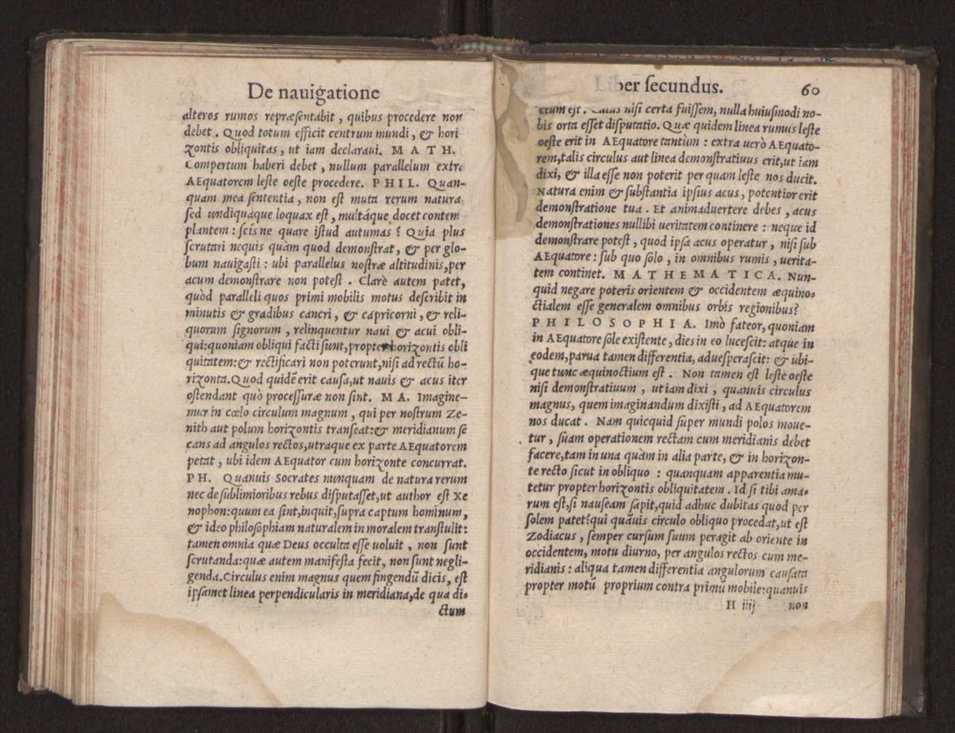 De nauigatione
alteros rumos repræsentabit, quibus procedere non
debet. Quod totum efficit centrum mundi, & hori
zontis obliquitas, ut iam declaraui. MATH.
Compertum haberi debet, nullum parallelum extra
AEquatorem leste oeste procedere. PHIL. Quan-
quam mea sententia, non est muta rerum natura
sed undiquaque loquax est, multáque docet contem
plantem: scis ne quare istud autumas? Quia plus
scrutari nequis quàm quod demonstrat, & per glo-
bum nauigasti: ubi parallelus nostræ altitudinis, per
acum demonstrare non potest. Clarè autem patet,
quòd paralleli quos primi mobilis motus describit in
minutis & gradibus cancri, & capricorni, & reli-
quorum signorum, relinquentur naui & acui obli-
qui: quoniam obliqui facti sunt, propter horizontis obli
quitatem: & rectificari non poterunt, nisi ad rectū ho-
rizonta. Quod quidē erit causa, ut nauis & acus iter
ostendant quò processuræ non sint. MA. Imagine-
mur in cœlo circulum magnum, qui per nostrum Ze-
nith aut polum horizontis transeat: & meridianum se
cans ad angulos rectos, utraque ex parte AEquatorem
petat, ubi idem AEquator cum horizonte concurrat.
PH. Quanuis Socrates nunquam de natura rerum
nec de sublimioribus rebus disputasset, ut author est Xe
nophon: quum ea sint, inquit, supra captum hominum,
& ideo philosophiam naturalem in moralem transtulit:
tamen omnia quæ Deus occulta esse uoluit, non sunt
scrutanda: quæ autem manifesta fecit, non sunt negli-
genda. Circulus enim magnus quem fingendū dicis, est
ipsamet linea perpendicularis in meridiana, de qua di-
ctum
Liber secundus. 60
ctum est. nisi certa fuissem, nulla huiusmodi no-
bis orta esset disputatio. Quæ quidem linea rumus leste
oeste erit in AEquatore tantùm: extra uerò AEquato-
rem, talis circulus aut linea demonstratiuus erit, ut iam
dixi, & illa esse non poterit per quam leste nos ducit.
Natura enim & substantia ipsius acus, potentior erit
demonstratione tua. Et animaduertere debes, acus
demonstrationes nullibi ueritatem continere: neque id
demonstrare potest, quod ipsa acus operatur, nisi sub
AEquatore: sub quo solo, in omnibus rumis, uerita-
tem continet. MATHEMATICA. Nun-
quid negare poteris orientem & occidentem æquino-
ctialem esse generalem omnibus orbis regionibus?
PHILOSOPHIA. Imò fateor, quoniam
in AEquatore sole existente, dies in eo lucescit: atque in
eodem, parua tamen differentia, aduesperascit: & ubi-
que tunc æquinoctium est. Non tamen est leste oeste
nisi demonstratiuum, ut iam dixi, quanuis circulus
magnus, quem imaginandum dixisti, ad AEquatorem
nos ducat. Nam quicquid super mundi polos moue-
tur, suam operationem rectam cum meridianis debet
facere, tam in una quàm in alia parte, & in horizon-
te recto sicut in obliquo: quanquam apparentia mu-
tetur propter horizontis obliquitatem. Id si tibi ama-
rum est, si nauseam sapit, quid adhuc dubitas quod per
solem patet? qui quāuis circulo obliquo procedat, ut est
Zodiacus, semper cursum suum peragit ab oriente in
occidentem, motu diurno, per angulos rectos cum me-
ridianis: aliqua tamen differentia angulorum causata
propter motū proprium contra primū mobile: quanuis
H iiij non